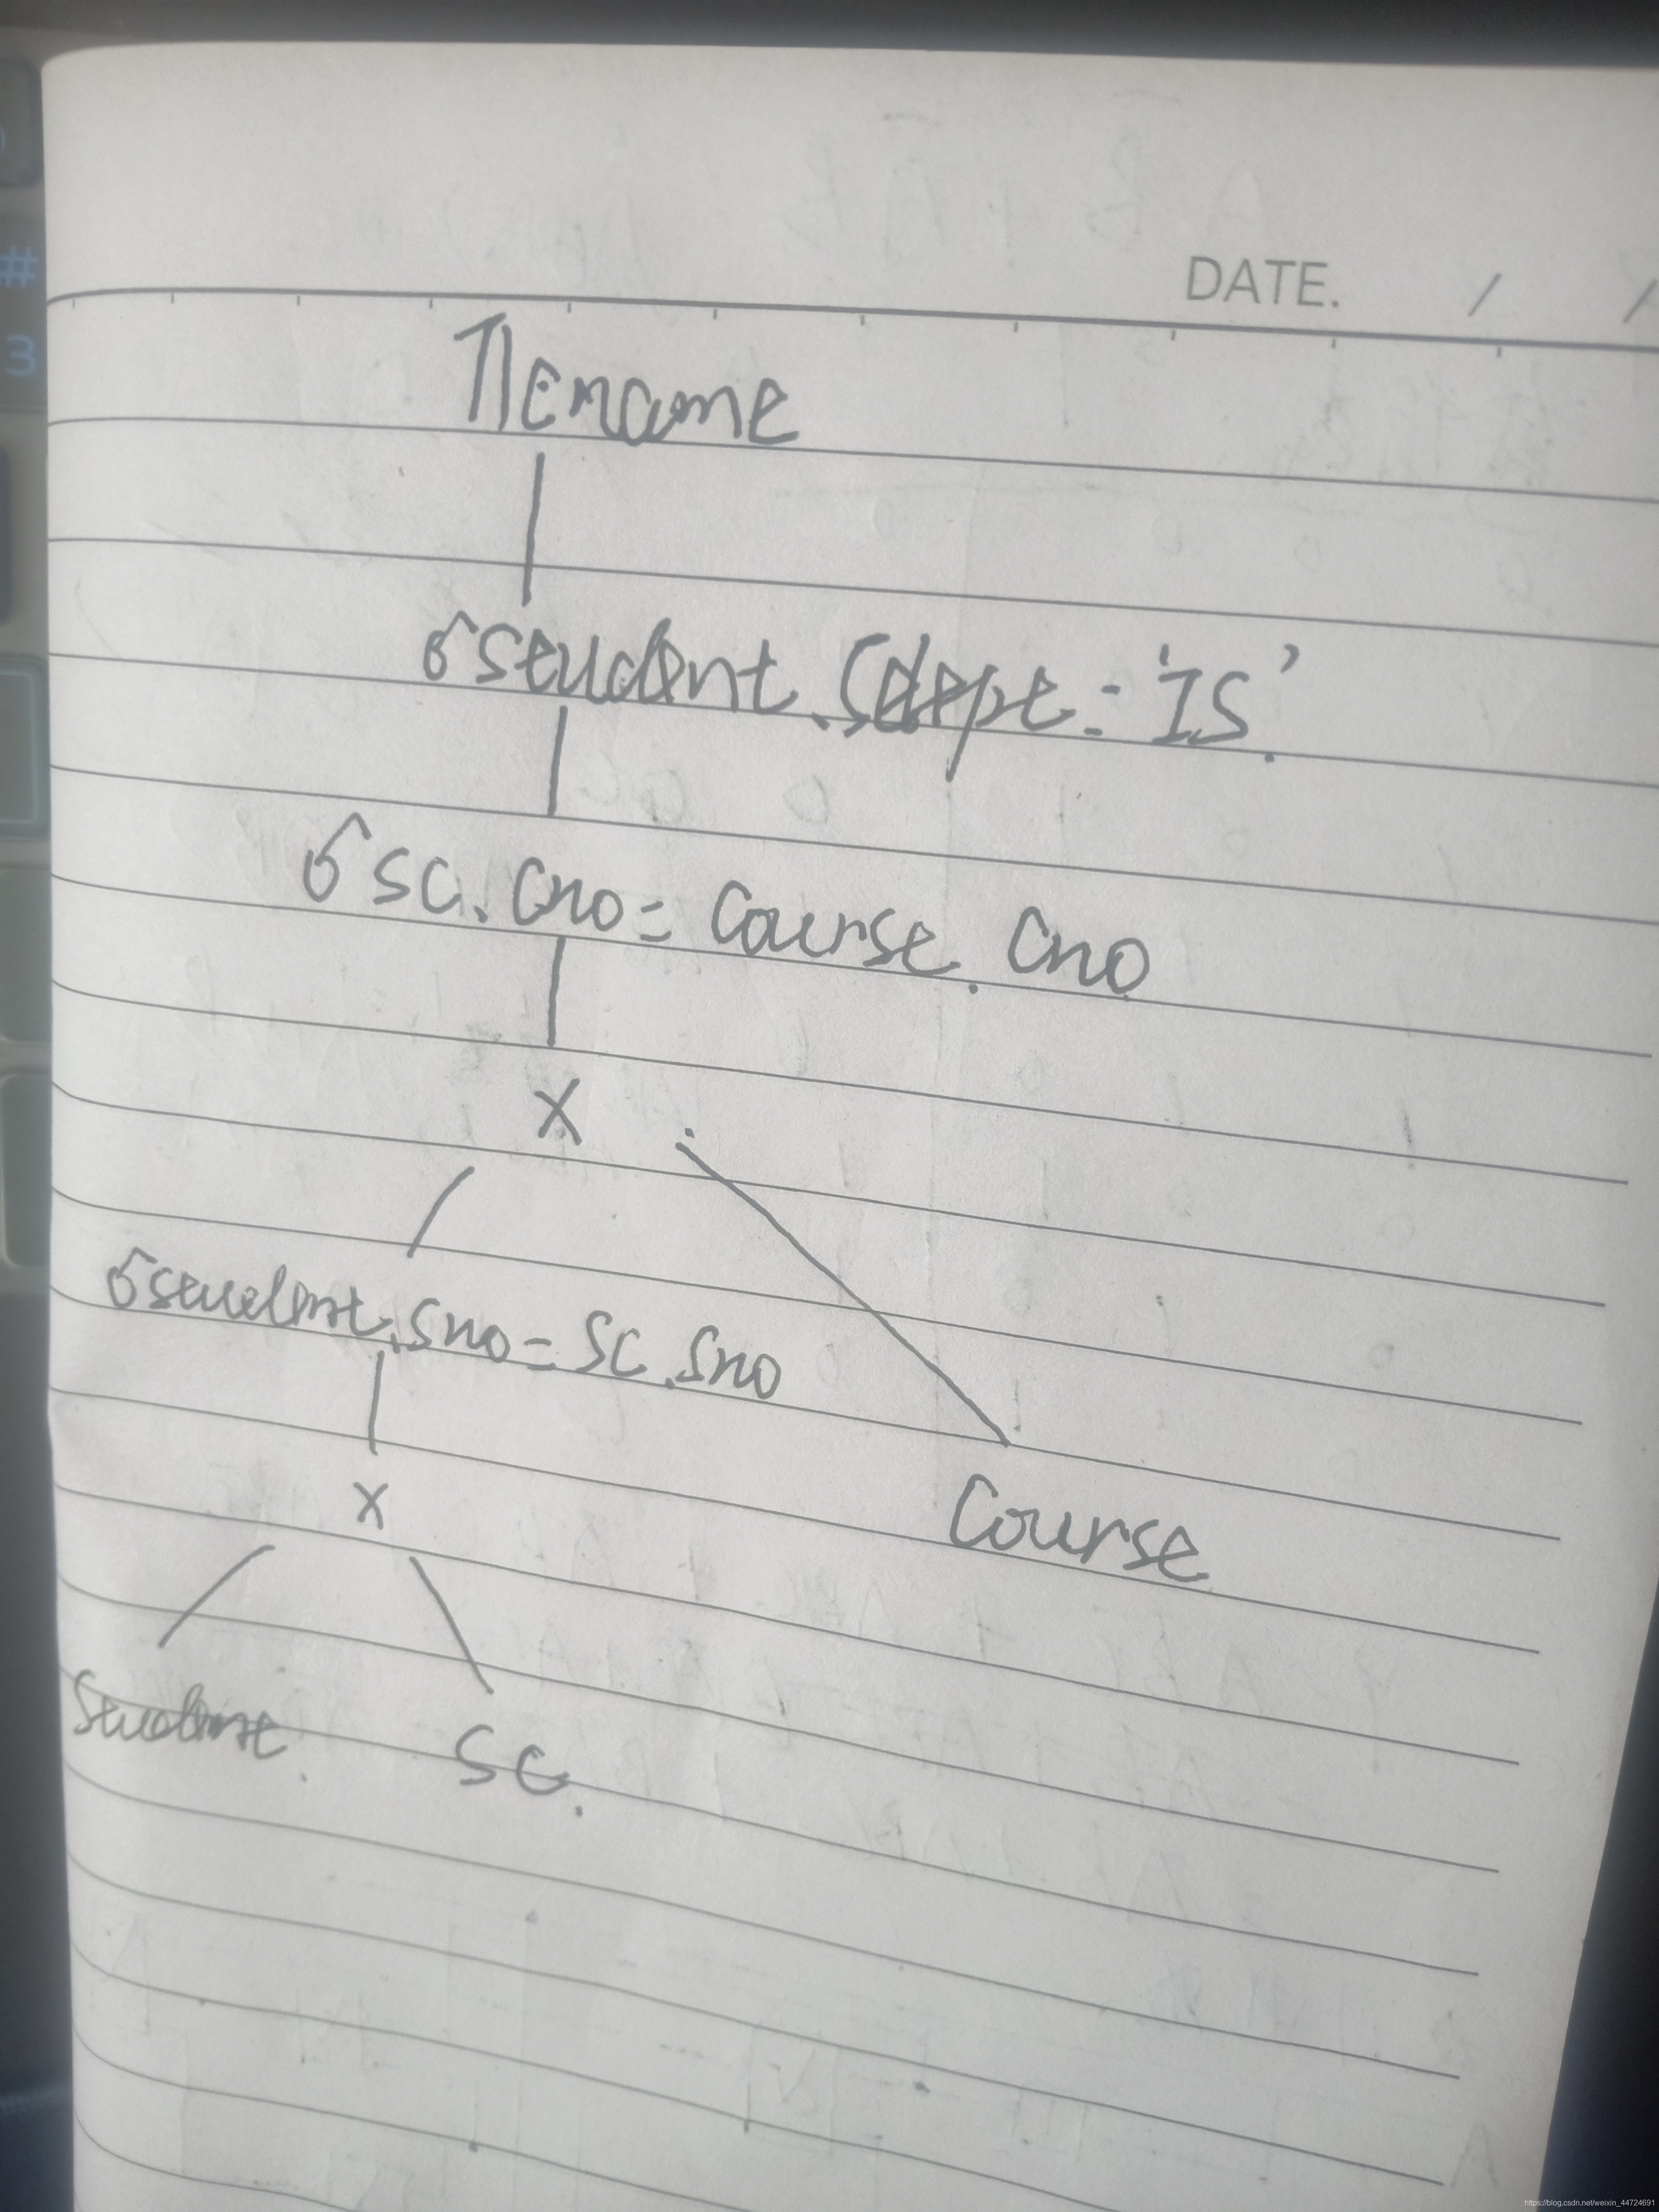 DATE. / /
Πcname
σstudent.Sdept='IS'.
σSC.Cno=Course.Cno
×
σstudent.Sno=SC.Sno
×
Course
Student.
SC.
#
3
https://blog.csdn.net/weixin_44724691